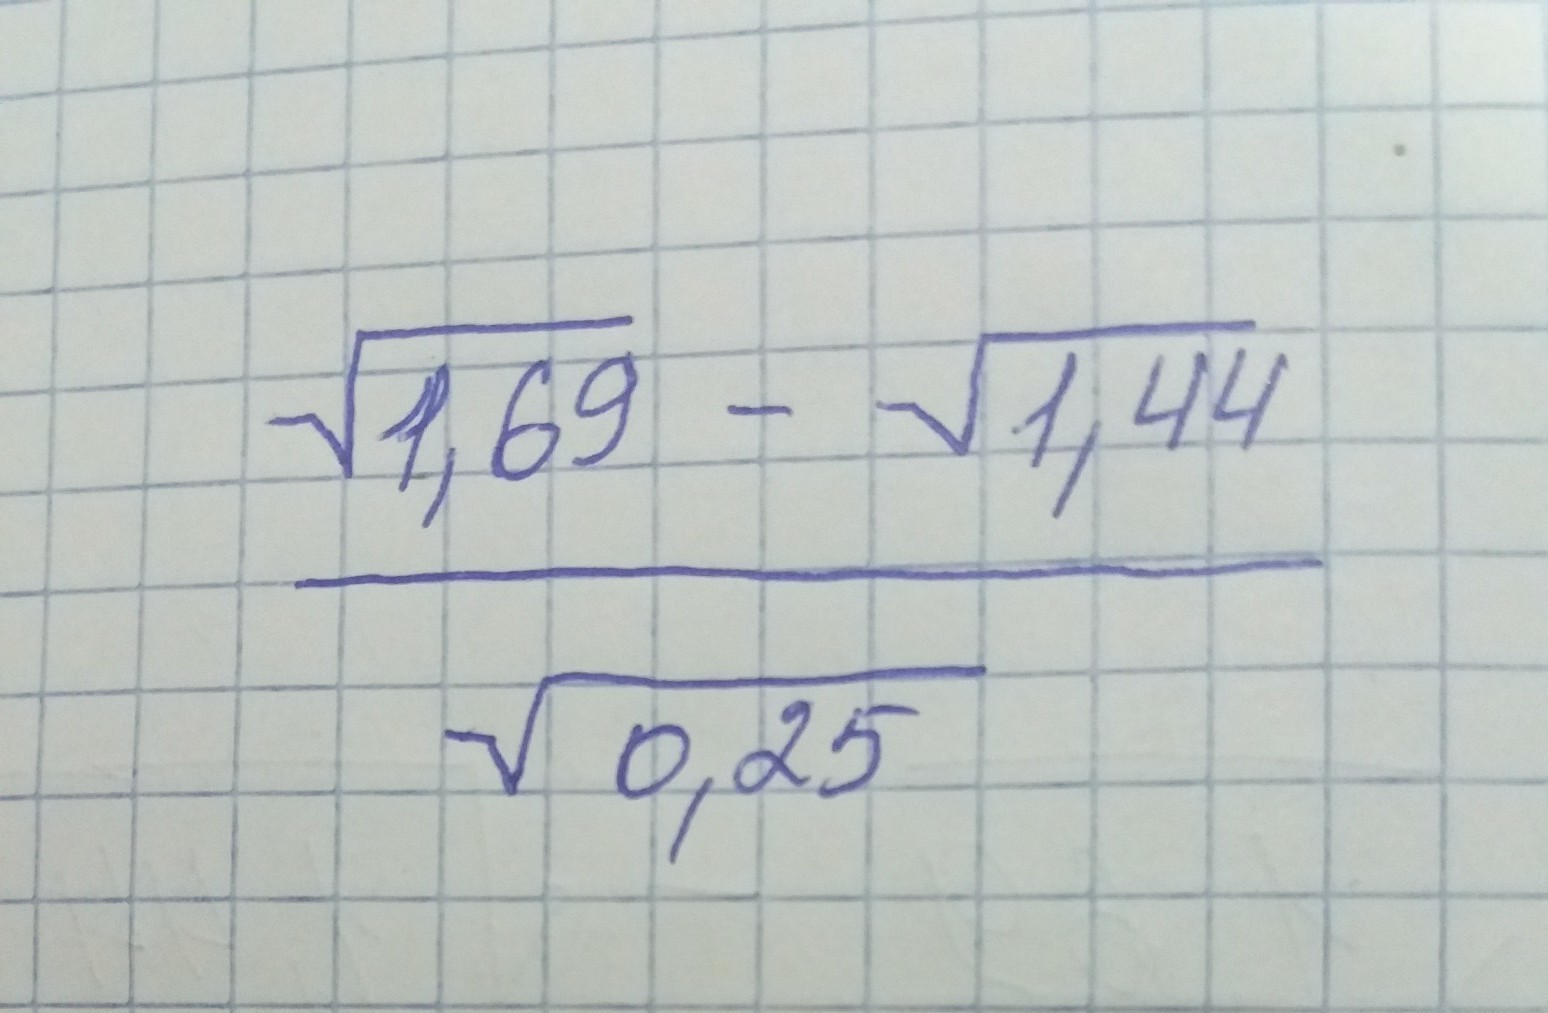 √1,69 - √1,44
√0,25